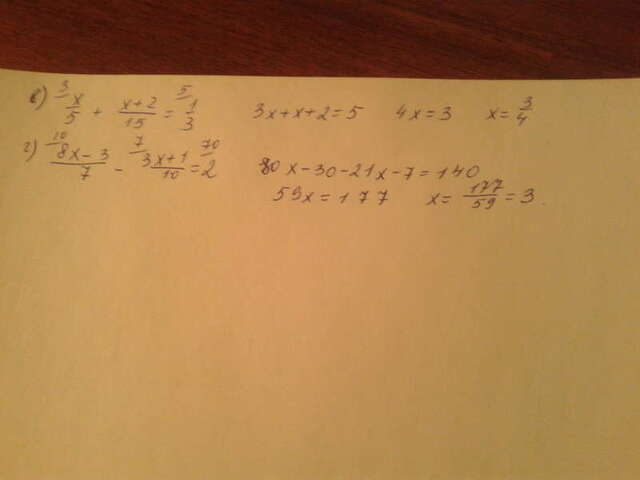 в) ³x/5 + (x+2)/15 = ⁵1/3   3x+x+2=5   4x=3   x=3/4
г) ¹⁰(8x-3)/7 - ⁷(3x+1)/10 = ⁷⁰2   80x-30-21x-7=140
59x=177   x=177/59=3.